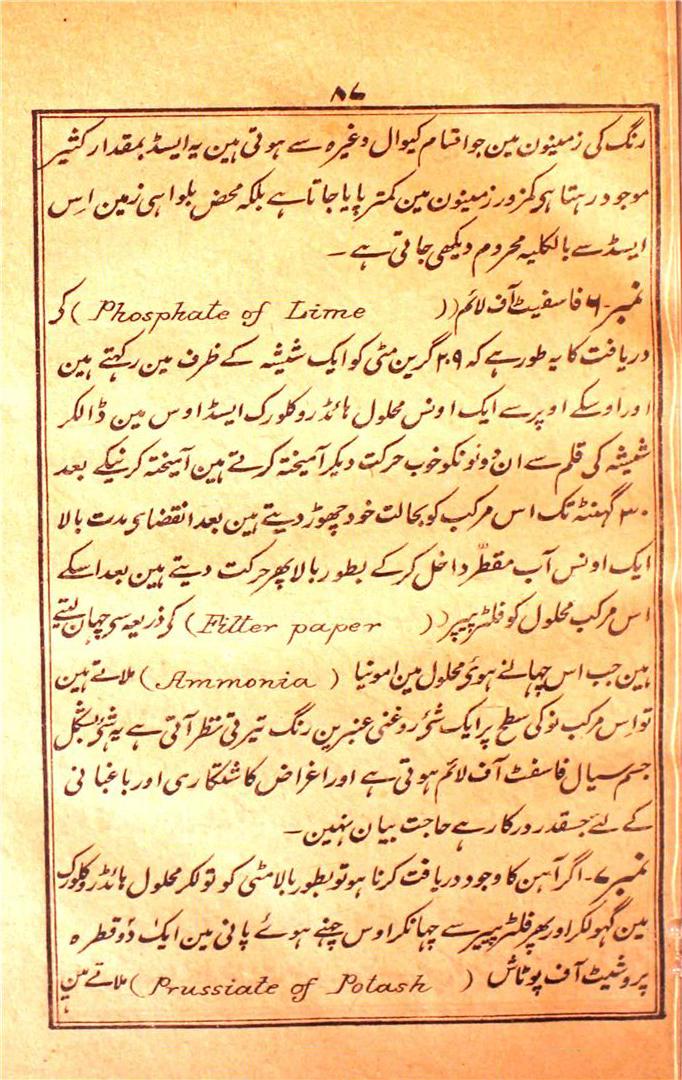 ۸۷
رنگ کی زمینون مین جو اقسام کیوال وغیرہ سے ہوتی ہین یہ ایسڈ بمقدار کثیر
موجود رہتا ہی کمزور زمینون مین کمتر پایا جاتا ہے بلکہ محض بلواہی زمین اس
ایسڈ سے بالکلیہ محروم دیکھی جاتی ہے ۔
نمبر ۶ فاسفیٹ آف لائم (( Phosphate of Lime ) کی
دریافت کا یہ طور ہے کہ ۲۰۹ گرین مٹی کو ایک شیشہ کے ظرف مین رکہتے ہین
اور اوسکے اوپر سے ایک اونس محلول ہائڈروکلورک ایسڈ اوس مین ڈالکر
شیشہ کی قلم سے ان دونونکو خوب حرکت دیکر آمیختہ کرتے ہین آمیختہ کرنیکے بعد
۳۰ گہنٹہ تک اس مرکب کو بحالت خود چھوڑ دیتے ہین بعد انقضای مدت بالا
ایک اونس آب مقطّر داخل کرکے بطور بالا پھر حرکت دیتے ہین بعد اسکے
اس مرکب محلول کو فلٹر پیپر (( Filter paper ) کی ذریعہ سی چہان لیتے
ہین جب اس چہانے ہوئی محلول مین امونیا ( Ammonia ) ملاتے ہین
تو اس مرکب نو کی سطح پر ایک شئ روغنی عنبرین رنگ تیرتی نظر آتی ہے یہ شئ بشکل
جسم سیال فاسفٹ آف لائم ہوتی ہے اور اغراض کاشتکاری اور باغبانی
کے لئے جسقدر درکار ہے حاجت بیان نہین ۔
نمبر ۷ ۔ اگر آہن کا وجود دریافت کرنا ہو تو بطور بالا مٹی کو تولکر محلول ہائڈروکلورک
مین گہولکر اور پھر فلٹر پیپر سے چہانکر اوس چہنے ہوئے پانی مین ایک دو قطرہ
پروشیٹ آف پوٹاش ( Prussiate of Potash ) ملاتے ہین